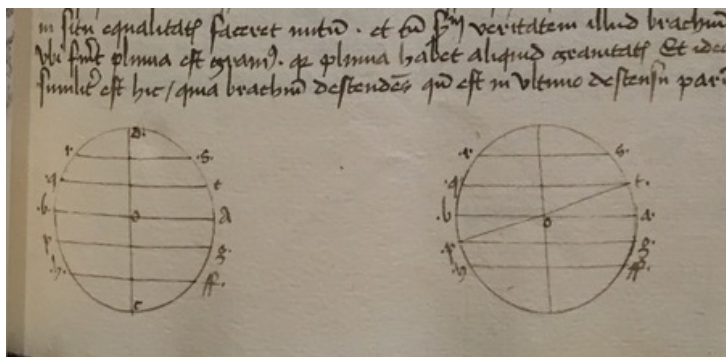 in situ equalitatꝭ faceret nutū . et tū sm̄ veritatem illud brachiū
vbi sūt pluma est graui9 . qr pluma habet aliquid grauitatꝭ Et ideo
similit̓ est hic / quia brachiū descendēs qn̄ est in vltimo descensu par
.r. D. .s.
.q t
.b. o A
.p. g.
.h. ff.
c
.r. s.
.q t.
b o a.
.p. g.
h ff.